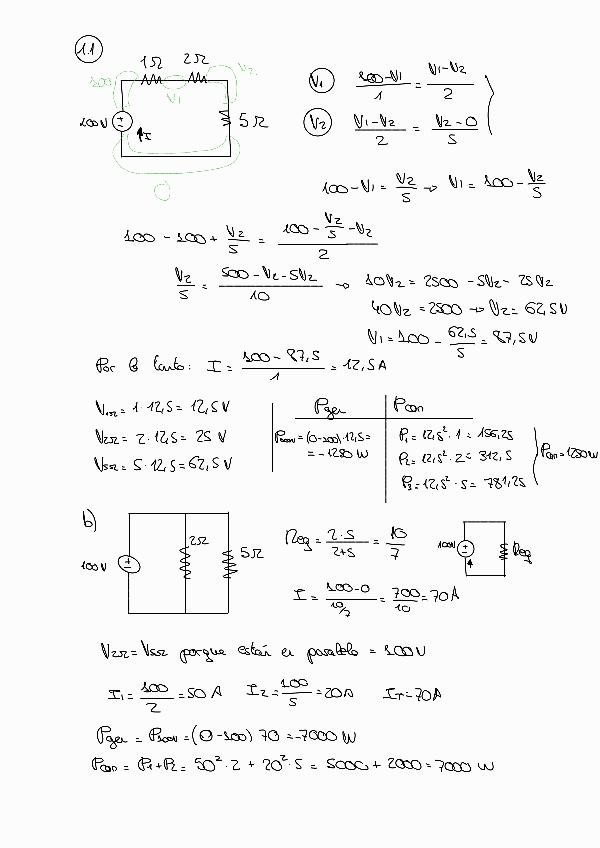 1.1
1Ω 2Ω
100 V1 V2
100V I 5Ω
0
V1 (100-V1)/1 = (V1-V2)/2
V2 (V1-V2)/2 = (V2-0)/5
100-V1 = V2/5 → V1 = 100 - V2/5
100 - 100 + V2/5 = (100 - V2/5 - V2)/2
V2/5 = (500 - V2 - 5V2)/10 → 10V2 = 2500 - 5V2 - 25V2
40V2 = 2500 → V2 = 62,5V
V1 = 100 - 62,5/5 = 87,5V
Por lo tanto: I = (100 - 87,5)/1 = 12,5A
V1Ω = 1·12,5 = 12,5V
V2Ω = 2·12,5 = 25V
V5Ω = 5·12,5 = 62,5V
Pgen Pcon
P100V = (0-100)·12,5 =
= -1250W
P1 = 12,5²·1 = 156,25
P2 = 12,5²·2 = 312,5
P3 = 12,5²·5 = 781,25
Pcon = 1250W
b)
100V 2Ω 5Ω
Req = (2·5)/(2+5) = 10/7
100V Req
I = (100-0)/(10/7) = 700/10 = 70A
V2Ω = V5Ω porque están en paralelo = 100V
I1 = 100/2 = 50A I2 = 100/5 = 20A IT = 70A
Pgen = P100V = (0-100) 70 = -7000W
Pcon = P1+P2 = 50²·2 + 20²·5 = 5000 + 2000 = 7000W